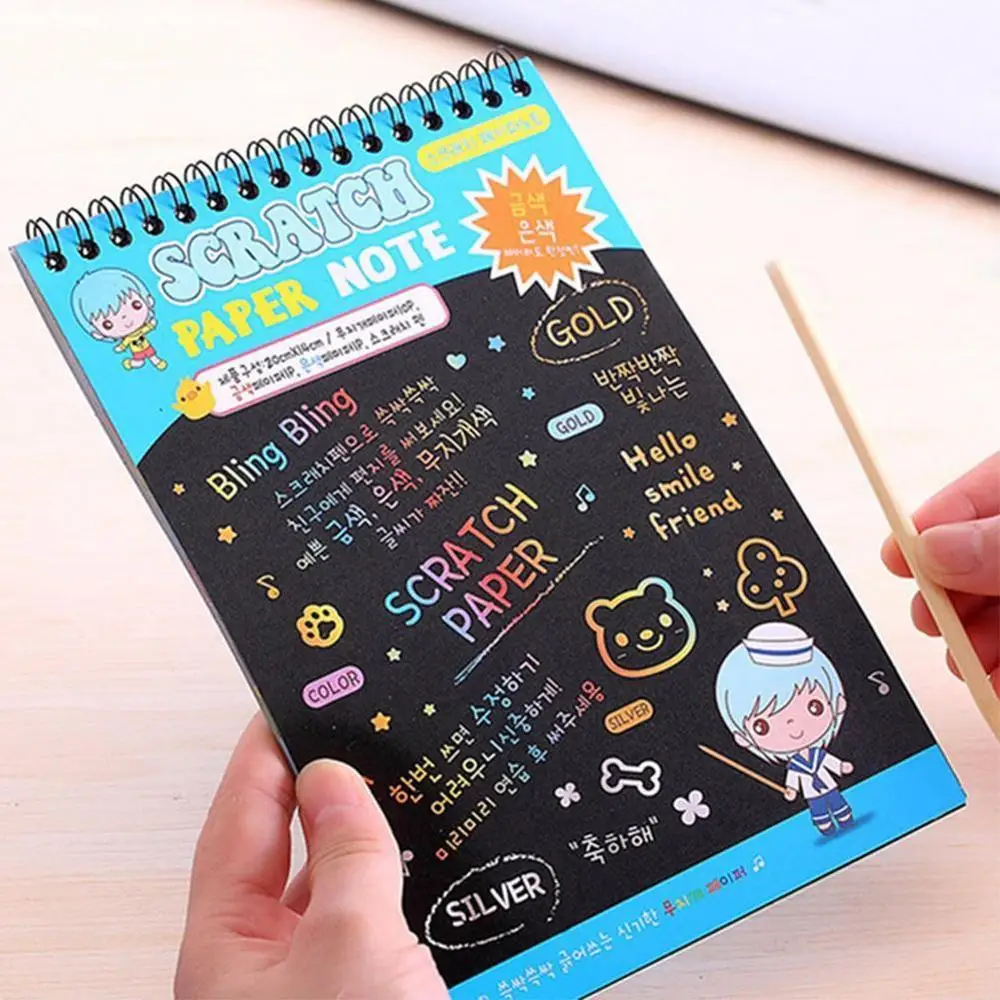 SCRATCH
PAPER NOTE
금색
은색
제품구성:20cmX14cm / 무지개페이퍼10P,
금색페이퍼1P, 은색페이퍼1P, 스크래치 펜
GOLD
반짝반짝
빛나는
GOLD
Bling Bling
스크래치펜으로 쓱싹쓱싹
친구에게 편지를 써보세요!
예쁜 금색, 은색, 무지개색
글씨가 짜잔!!
Hello
smile
friend
SCRATCH
PAPER
COLOR
SILVER
한번 쓰면 수정하기
어려우니신중하게!
미리미리 연습 후 써주세용
"축하해"
SILVER
쓱싹쓱싹 긁어쓰는 신기한 무지개 페이퍼